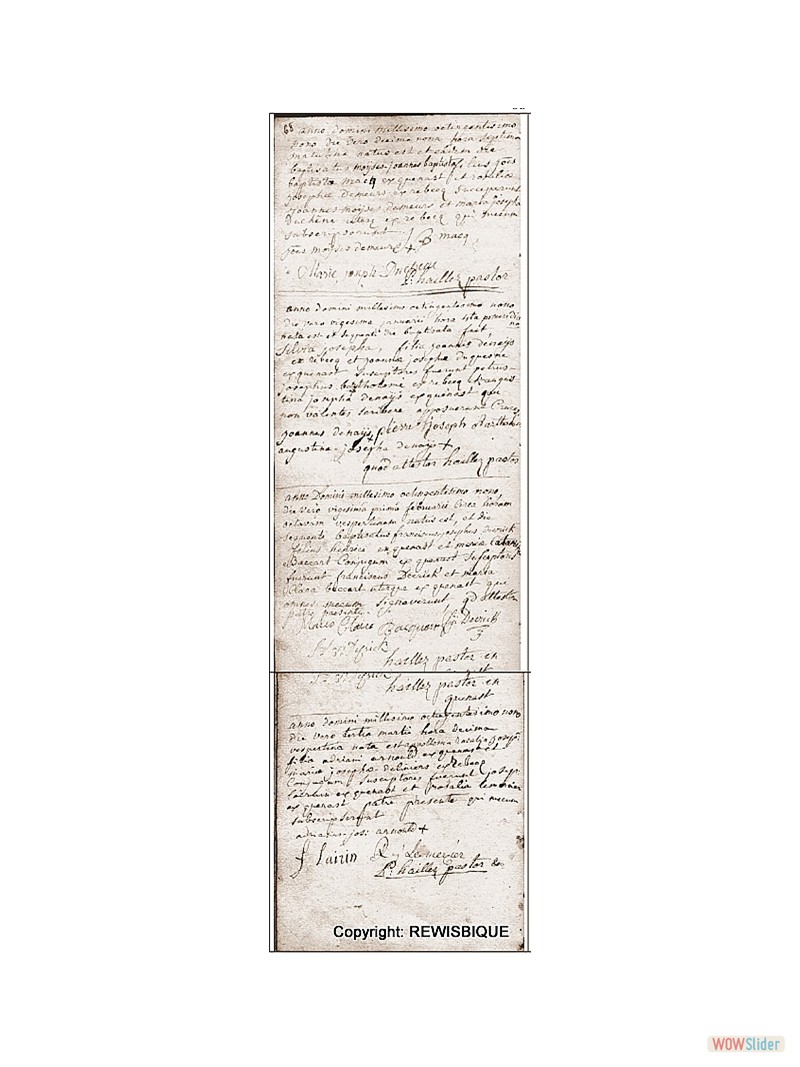 68 anno domini millesimo octingentesimo
nono die vero decima nona hora septima
matutina natus est et eadem die
baptisatus moyses joannes baptista, filius joes
baptista macq ex quenast et rosalia
josepha Demeurs ex rebecq Susceperunt
joannes moyses demeurs et maria josepha
Duchene uterq ex rebecq qui mecum
subscripserunt J B macq
joes moyses demeurs +
Marie joseph Duchene
P: haillez pastor
anno domini millesimo octingentesimo nono
die vero vigesima januarii hora
nata est et sequenti die baptisata fuit,
Silvia josepha, filia joannes denays
ex rebecq et joanna josepha duquesne
ex quenast Susceptores fuerunt petrus
josephus bartholomé ex rebecq et augus-
tina josepha denays ex quenast qui
non valentes scribere apposuerunt Cruces
joannes denays pierre joseph Bartholomé
augustina josepha denays +
quod attestor haillez pastor
anno Domini millesimo octingentesimo nono,
die vero vigesima prima februarii Circa horam
octavam vespertinam natus est, et die
sequenti baptisatus franciscus josephus Derrick
filius ex quenast et maria
Baccart Conjugum ex quenast Susceptores
fuerunt franciscus Derrick et maria
Clara baccart uterque ex quenast qui
omnes mecum Signaverunt, qd attestor
patre presente
Marie Claire Bacquart fs Derrick
haillez pastor en
haillez pastor en
quenast
anno domini millesimo octingentesimo nono
die vero tertia martii hora decima
vespertina nata est rosalia joseph
filia adriani arnould ex quenast et
maria josepha deliniers ex Rebecq
Conjugum Susceptores fuerunt joseph
Lairin ex quenast et rosalia lemenier
ex quenast patre presente qui mecum
subscripserunt
adrianus jos: arnould +
J Lairin R j Lemenier
P: haillez pastor
Copyright: REWISBIQUE
WOWSlider